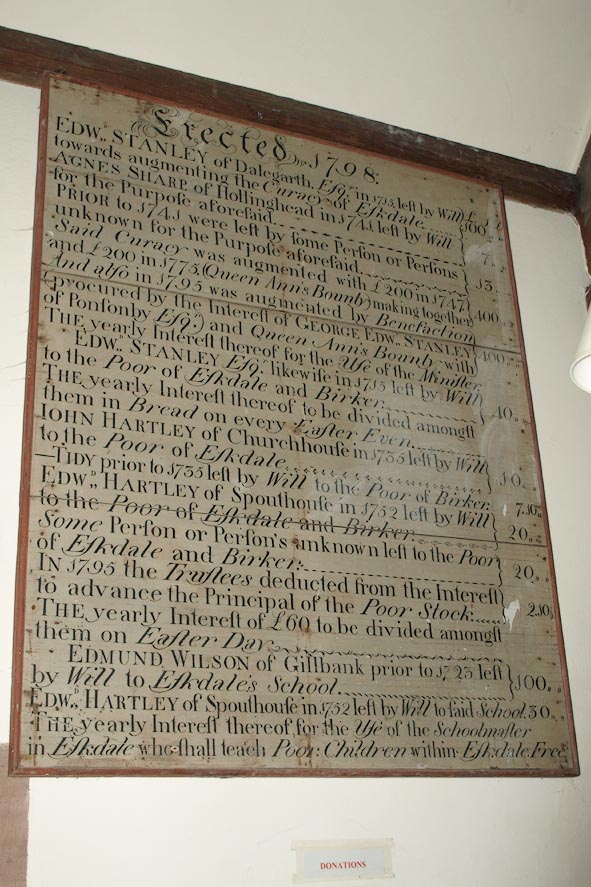 Erected 1798:
EDW.D STANLEY of Dalegarth, Esqr. in 1715 left by Will £
towards augmenting the Curacy of Eſkdale...... 100 " "
AGNES SHARP of Hollinghead in 1741 left by Will
for the Purpose aforeſaid
PRIOR to 1741 were left by ſome Perſon or Perſons
unknown for the Purpose aforeſaid 13 "
Said Curacy was augmented with £200 in 1747
and £200 in 1775 (Queen Ann's Bounty) making together 400 " "
And alſo in 1795 was augmented by Benefaction
(procured by the Intereſt of GEORGE EDW. STANLEY
of Ponſonby Eſq.) and Queen Ann's Bounty with 400 " "
THE yearly Intereſt thereof for the Uſe of the Miniſter
EDW. STANLEY Eſq. likewiſe in 1715 left by Will
to the Poor of Eſkdale and Birker 40 " "
THE yearly Intereſt thereof to be divided amongſt
them in Bread on every Eaſter Even
IOHN HARTLEY of Churchhouſe in 1735 left by Will
to the Poor of Eſkdale 10 "
—TIDY prior to 1735 left by Will to the Poor of Birker 7.10"
EDW.D HARTLEY of Spouthouſe in 1752 left by Will
to the Poor of Eſkdale and Birker 20 " "
Some Perſon or Perſon's unknown left to the Poor
of Eſkdale and Birker: 20 " "
IN 1795 the Truſtees deducted from the Intereſt
to advance the Principal of the Poor Stock 2.10"
THE yearly Intereſt of £60 to be divided amongſt
them on Eaſter Day
EDMUND WILSON of Gillbank prior to 1723 left
by Will to Eſkdale's School 100 " "
EDW.D HARTLEY of Spouthouſe in 1752 left by Will to ſaid School. 30 " "
THE yearly Intereſt thereof for the Uſe of the Schoolmaſter
in Eſkdale who ſhall teach Poor Children within Eſkdale Free
DONATIONS